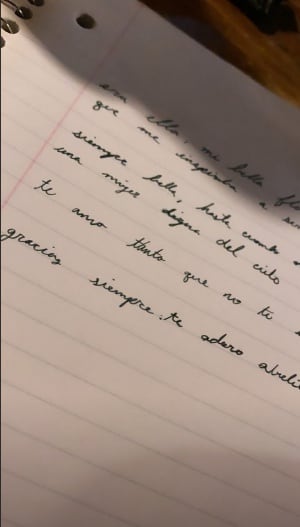 ella, mi bella
que me inspiraba a
siempre bella, hasta cuando
una mujer digna del cielo
te amo tanto que no te
gracias siempre. te adoro